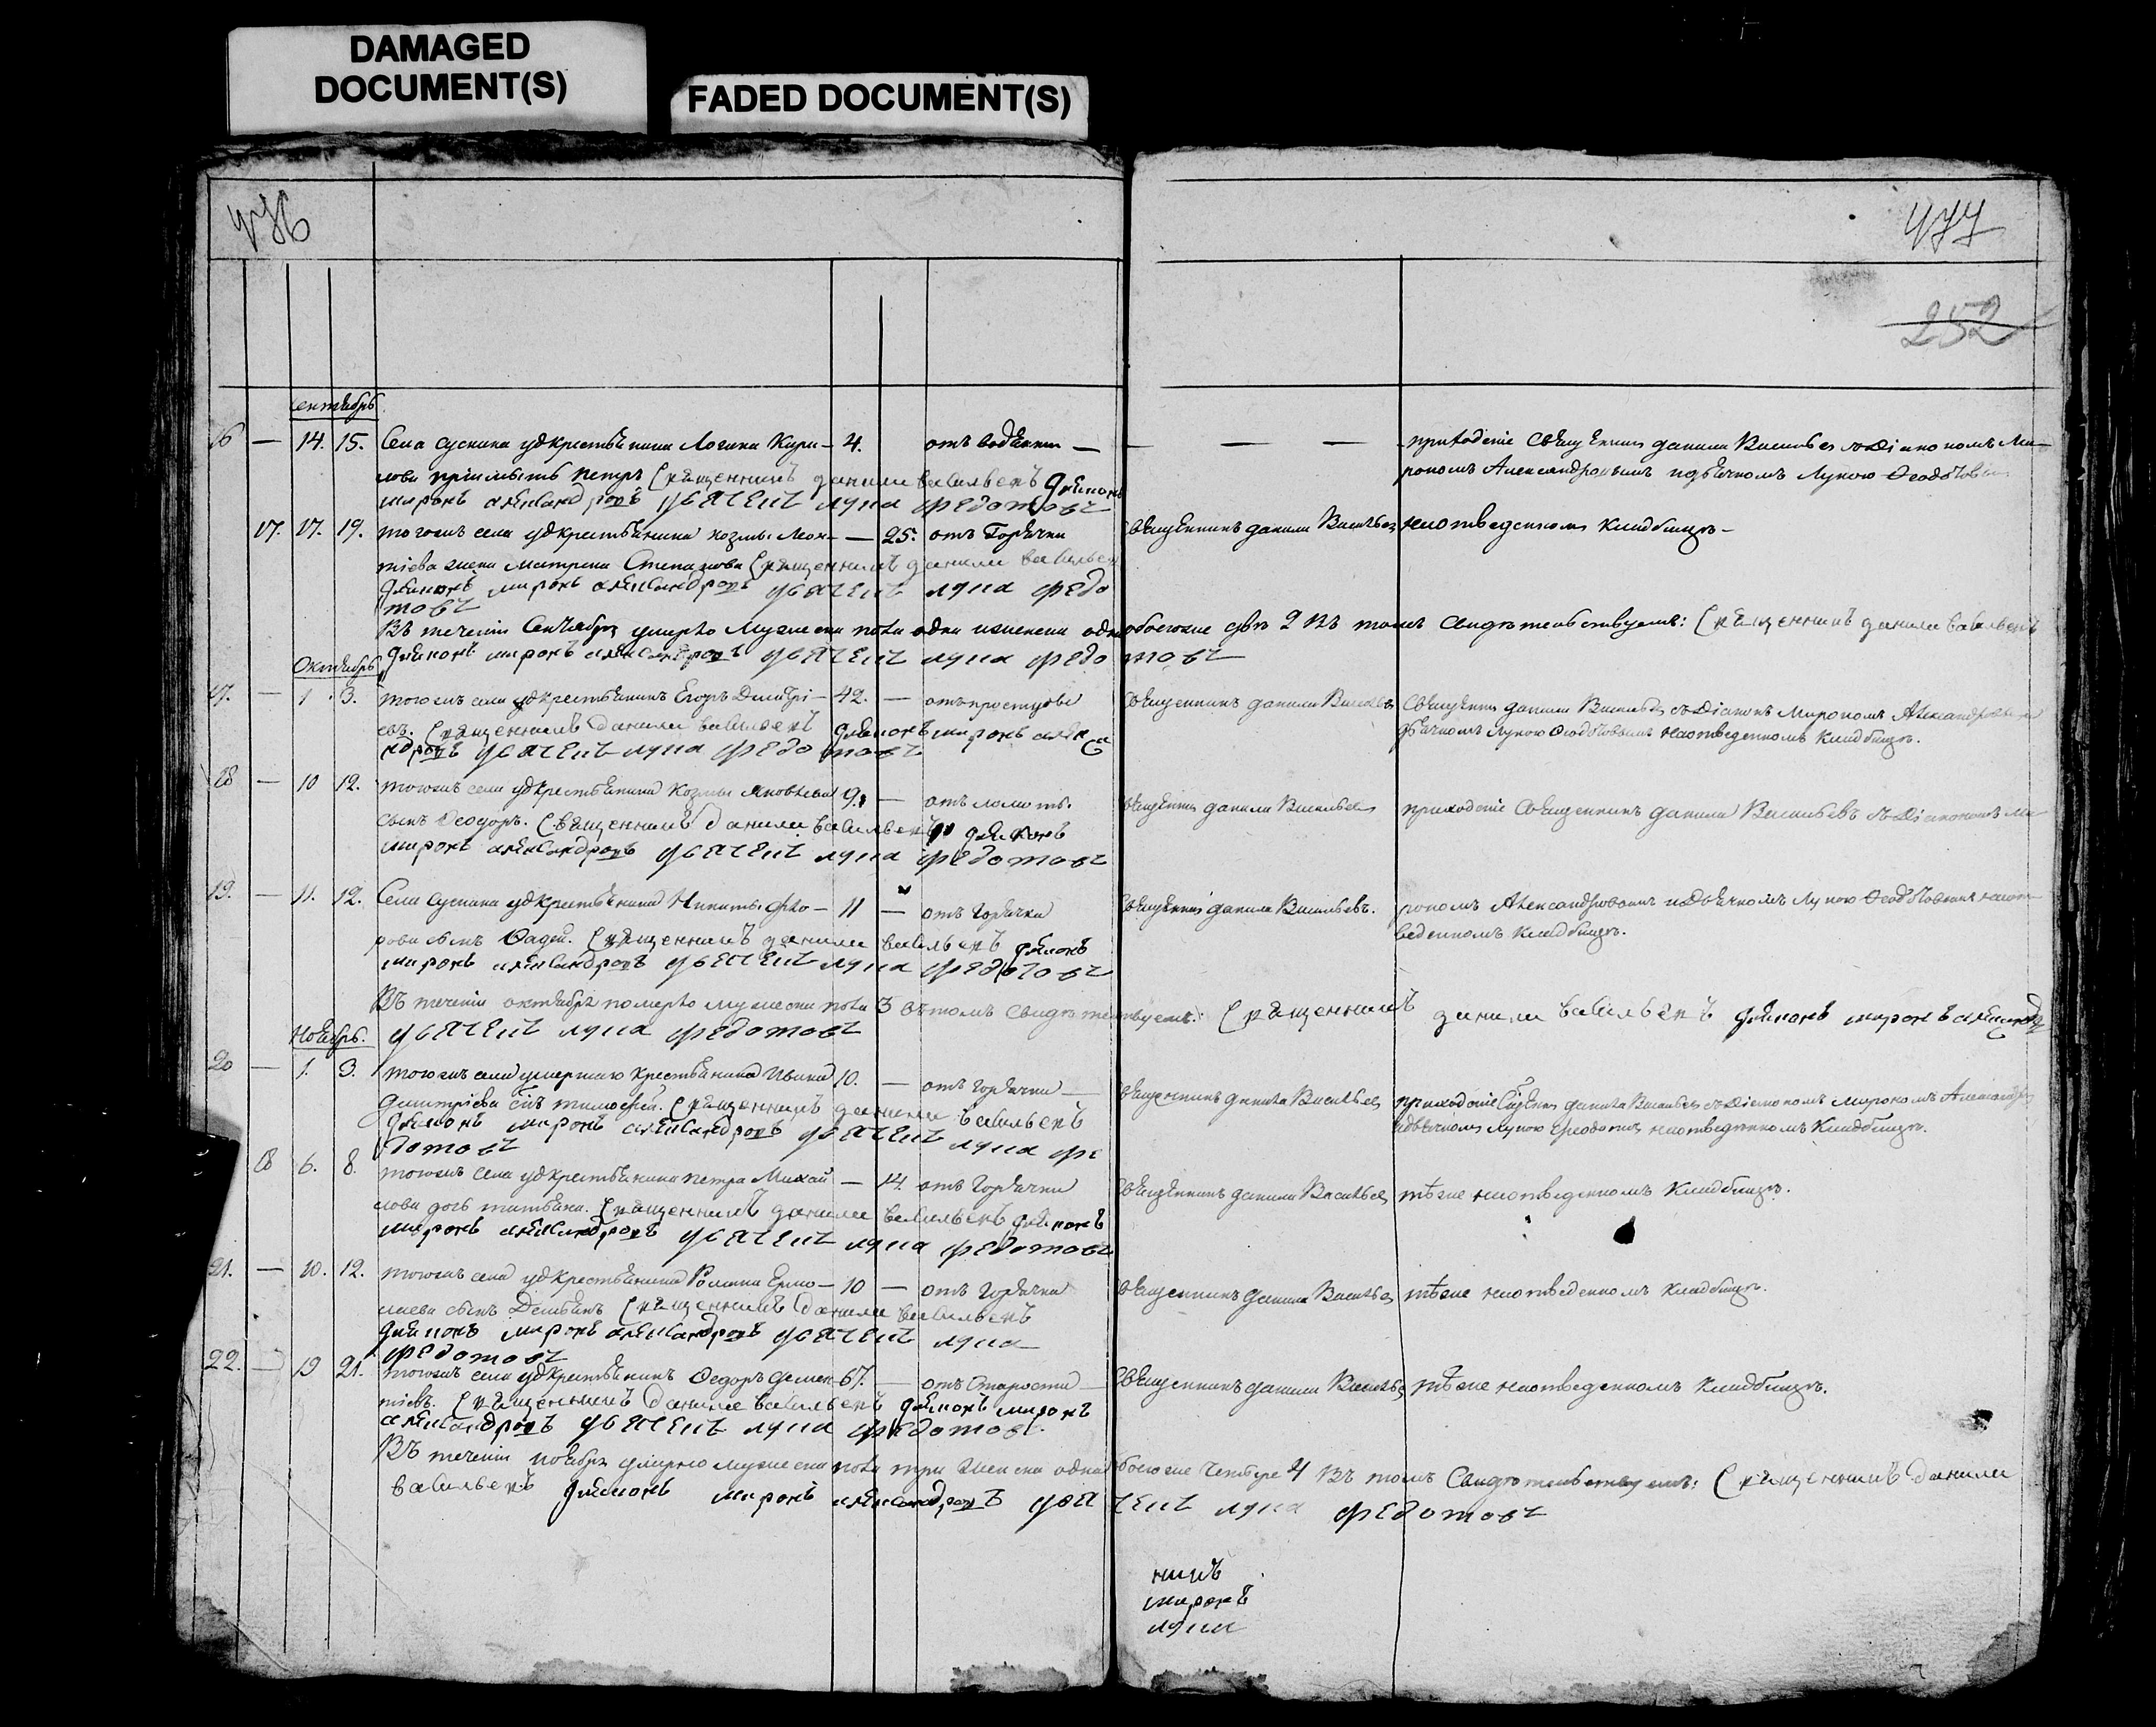 DAMAGED
DOCUMENT(S)
FADED DOCUMENT(S)
476
477
252
Сентябрь
16 — 14. 15. Села Сускина удкрестьянина Логина Кири— 4. отъ водянки —
лова пріимышъ Петръ Священникъ данила васильевъ дьяконъ
миронъ александровъ дьячекъ лука федотовъ
приходскіе Священникъ данила Васильевъ съ Діакономъ Ми—
рономъ Александровымъ и дьячкомъ Лукою Ѳеодотовымъ
17. 17. 19. тогожъ села удкрестьянина козмы Леон— — 25. отъ Горячки
тіева жена Матрена Степанова Священникъ данила васильевъ
дьяконъ миронъ александровъ дьячекъ лука федо
товъ
Священникъ данила Васильевъ на отведенномъ кладбищѣ —
Въ теченіи Сентября умерло Мужеска пола одинъ женска одна обоегоже два 2 Въ томъ Свидѣтельствуемъ: Священникъ данила васильевъ
дьяконъ миронъ александровъ дьячекъ лука федотовъ
Октябрь
17. — 1. 3. тогожъ села удкрестьянинъ Егоръ Дмитрі— 42. — отъ простуды
евъ. Священникъ данила васильевъ дьяконъ миронъ алекса
ндровъ дьячекъ лука федотовъ
Священникъ данила Васильевъ
Священникъ данила Васильевъ съ Діакономъ Мирономъ Александровымъ
дьячкомъ Лукою Ѳеодотовымъ на отведенномъ кладбищѣ.
18 — 10 12. тогожъ села удкрестьянина Козмы Яковлева 9. — отъ ломоты.
сынъ Ѳеодоръ. Священникъ данила васильевъ дьяконъ
миронъ александровъ дьячекъ лука федотовъ
Священникъ данила Васильевъ
приходскіе Священникъ данила Васильевъ съ Діакономъ Ми
19. — 11. 12. Села Сускина удкрестьянина Никиты Фро— 11 — отъ горячки
лова сынъ Ѳадей. Священникъ данила васильевъ дьяконъ
миронъ александровъ дьячекъ лука федотовъ
Священникъ данила Васильевъ.
рономъ Александровымъ и дьячкомъ Лукою Ѳеодотовымъ на от
веденномъ кладбищѣ.
Въ теченіи октября померло мужеска пола 3 въ томъ свидѣтельствуемъ: Священникъ данила васильевъ дьяконъ миронъ александровъ
дьячекъ лука федотовъ
Ноябрь.
20 — 1. 3. тогожъ села умершаго крестьянина Ивана 10. — отъ горячки —
Дмитріева сынъ тимофей. Священникъ данила васильевъ
дьяконъ миронъ александровъ дьячекъ лука фе
дотовъ
Священникъ данила Васильевъ
приходскіе Священникъ данила Васильевъ съ Діакономъ мирономъ Александровымъ
и дьячкомъ Лукою на отведенномъ кладбищѣ.
18 6. 8. тогожъ села удкрестьянина петра Михай — 14. отъ горячки
лова дочь татьяна. Священникъ данила васильевъ дьяконъ
миронъ александровъ дьячекъ лука федотовъ
Священникъ данила Васильевъ тѣже на отведенномъ кладбищѣ.
21. — 10. 12. тогожъ села удкрестьянина Романа Ермо— 10 — отъ горячки
лаева сынъ Демьянъ Священникъ данила васильевъ
дьяконъ миронъ александровъ дьячекъ лука
федотовъ
Священникъ данила Васильевъ тѣже на отведенномъ кладбищѣ.
22. — 19 21. тогожъ села удкрестьянинъ Ѳедоръ демен— 67. — отъ Старости —
тіевъ. Священникъ данила васильевъ дьяконъ миронъ
александровъ дьячекъ лука федотовъ.
Священникъ данила Васильевъ тѣже на отведенномъ кладбищѣ.
Въ теченіи ноября умерло мужеска пола три женска одна обоегоже Четыре 4 Въ томъ Свидѣтельствуемъ: Священникъ данила
васильевъ дьяконъ миронъ александровъ дьячекъ лука федотовъ
никъ
миронъ
лука